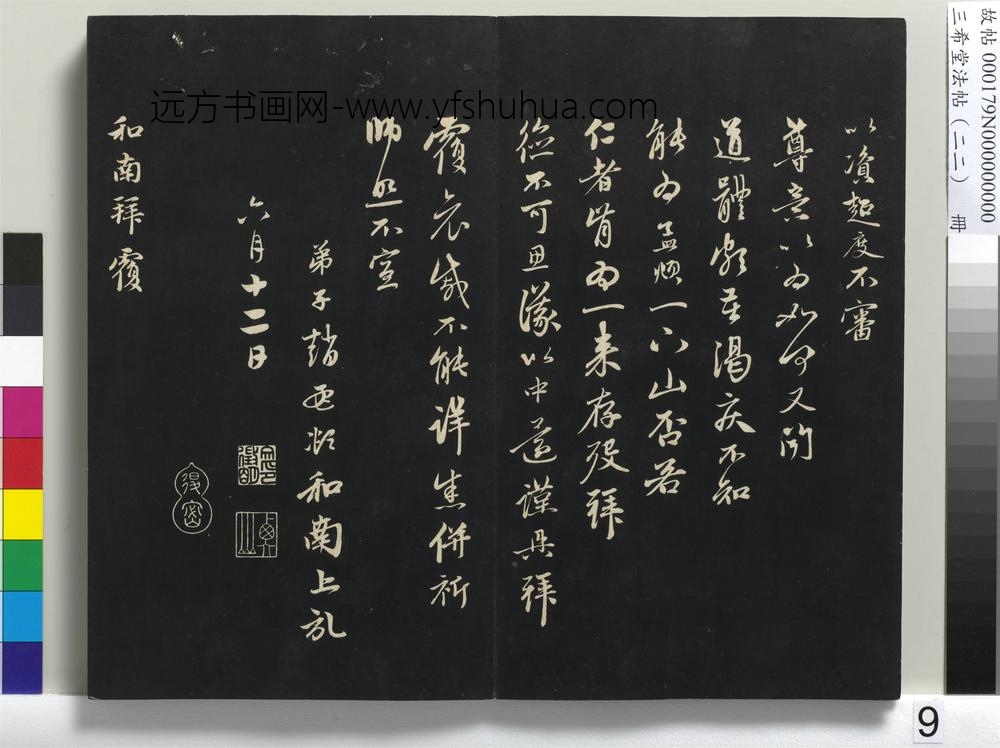 故帖 000179N000000000
三希堂法帖（二二） 冊
远方书画网-www.yfshuhua.com
以資超度不審
尊意以为如何又聞
道體頗苦渴疾不知
能为孟頫一下山否若
仁者肯为一来存殁拜
德不可思議以中遣謹此拜
覆哀感不能詳悉併祈
師照不宣
弟子趙孟頫和南上禮
六月十二日
和南拜覆
9